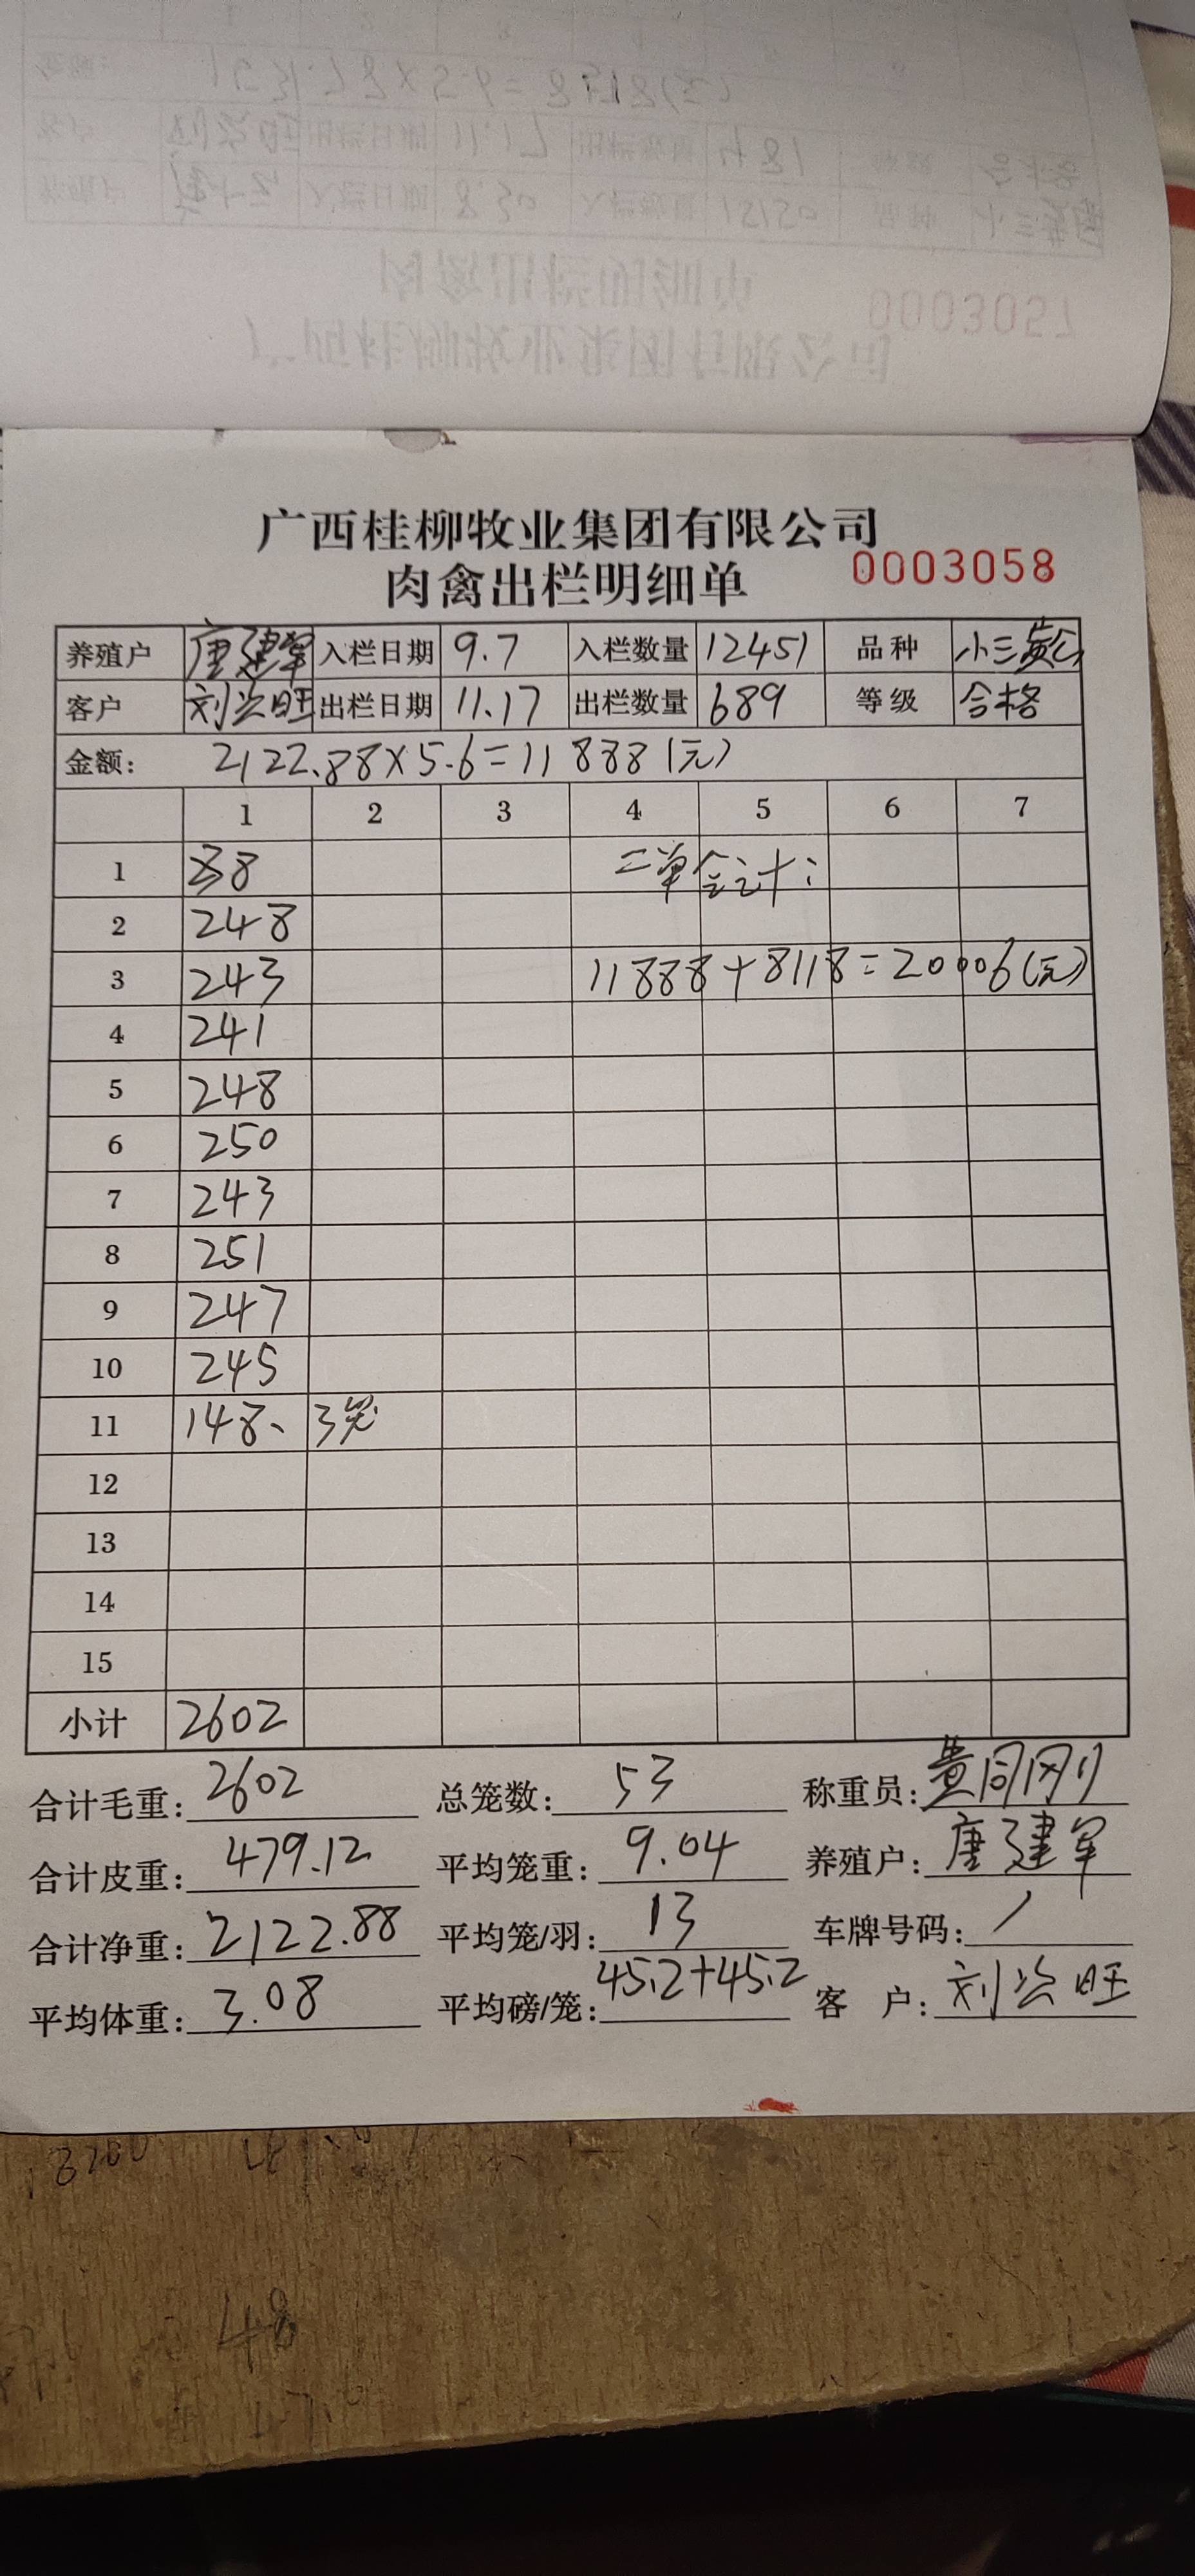 0003057
广西桂柳牧业集团有限公司
肉禽出栏明细单 0003058
养殖户 唐建军 入栏日期 9.7 入栏数量 12451 品种 小三黄
客户 刘兴旺 出栏日期 11.17 出栏数量 689 等级 合格
金额: 2122.88×5.6=11888(元)
1 2 3 4 5 6 7
1 238 二单合计:
2 248
3 243 11888+8118=20006(元)
4 241
5 248
6 250
7 243
8 251
9 247
10 245
11 148、 3笼
12
13
14
15
小计 2602
合计毛重: 2602 总笼数: 53 称重员: 黄同刚
合计皮重: 479.12 平均笼重: 9.04 养殖户: 唐建军
合计净重: 2122.88 平均笼/羽: 13 车牌号码: /
平均体重: 3.08 平均磅/笼: 45.2+45.2 客 户: 刘兴旺
48